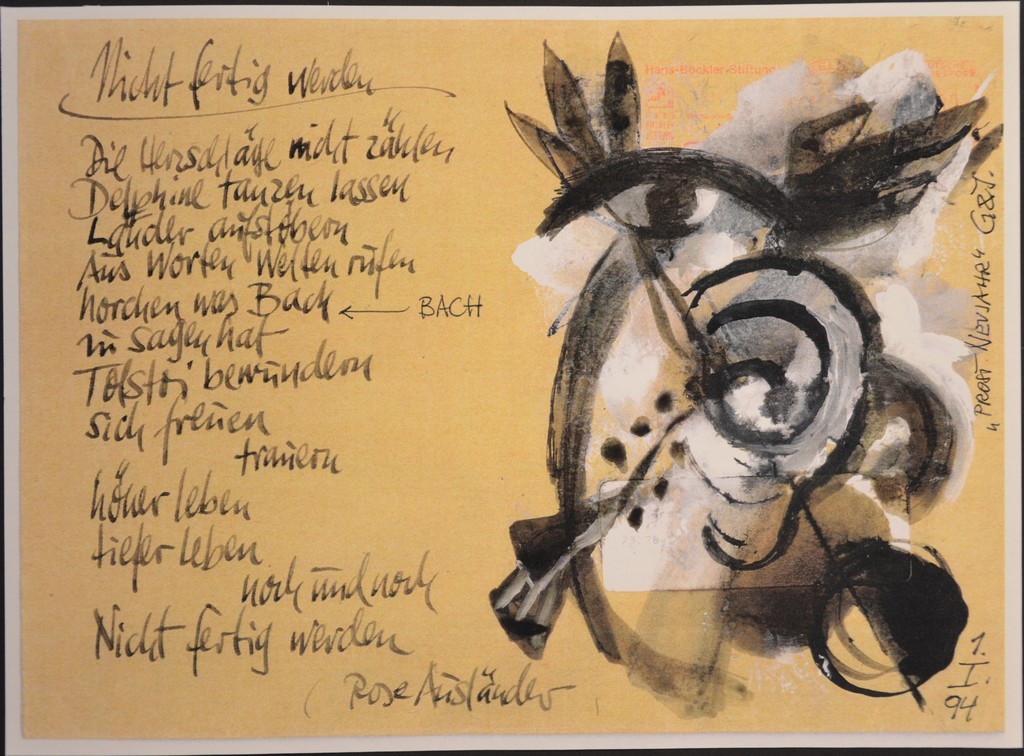 Nicht fertig werden
Die Herzschläge nicht zählen
Delphine tanzen lassen
Länder aufstöbern
Aus Worten Welten rufen
horchen was Bach ← BACH
zu sagen hat
Tolstoi bewundern
sich freuen
trauern
höher leben
tiefer leben
noch und noch
Nicht fertig werden
Rose Ausländer
Hans-Böckler-Stiftung
"PROST NEUJAHR" G&J.
1.
I.
94